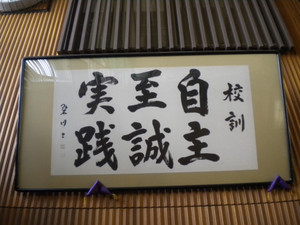 校訓
自主
至誠
実践